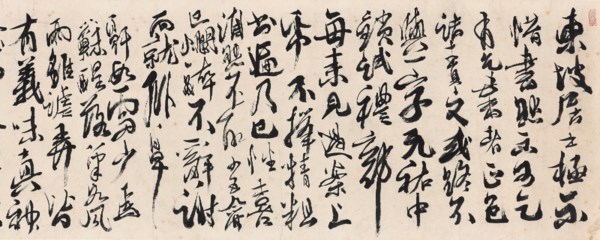 東坡居士極不
惜書然不可乞
有乞書者正色
詰責之或終不
與一字元祐中
鎖試禮部
每来見過案上
紙不擇精粗
書遍乃已性喜
酒然不能四五龠
已爛醉不辭謝
而就卧鼻
鼾如雷少焉
蘇醒落筆如風
雨雖謔弄皆
有義味真神